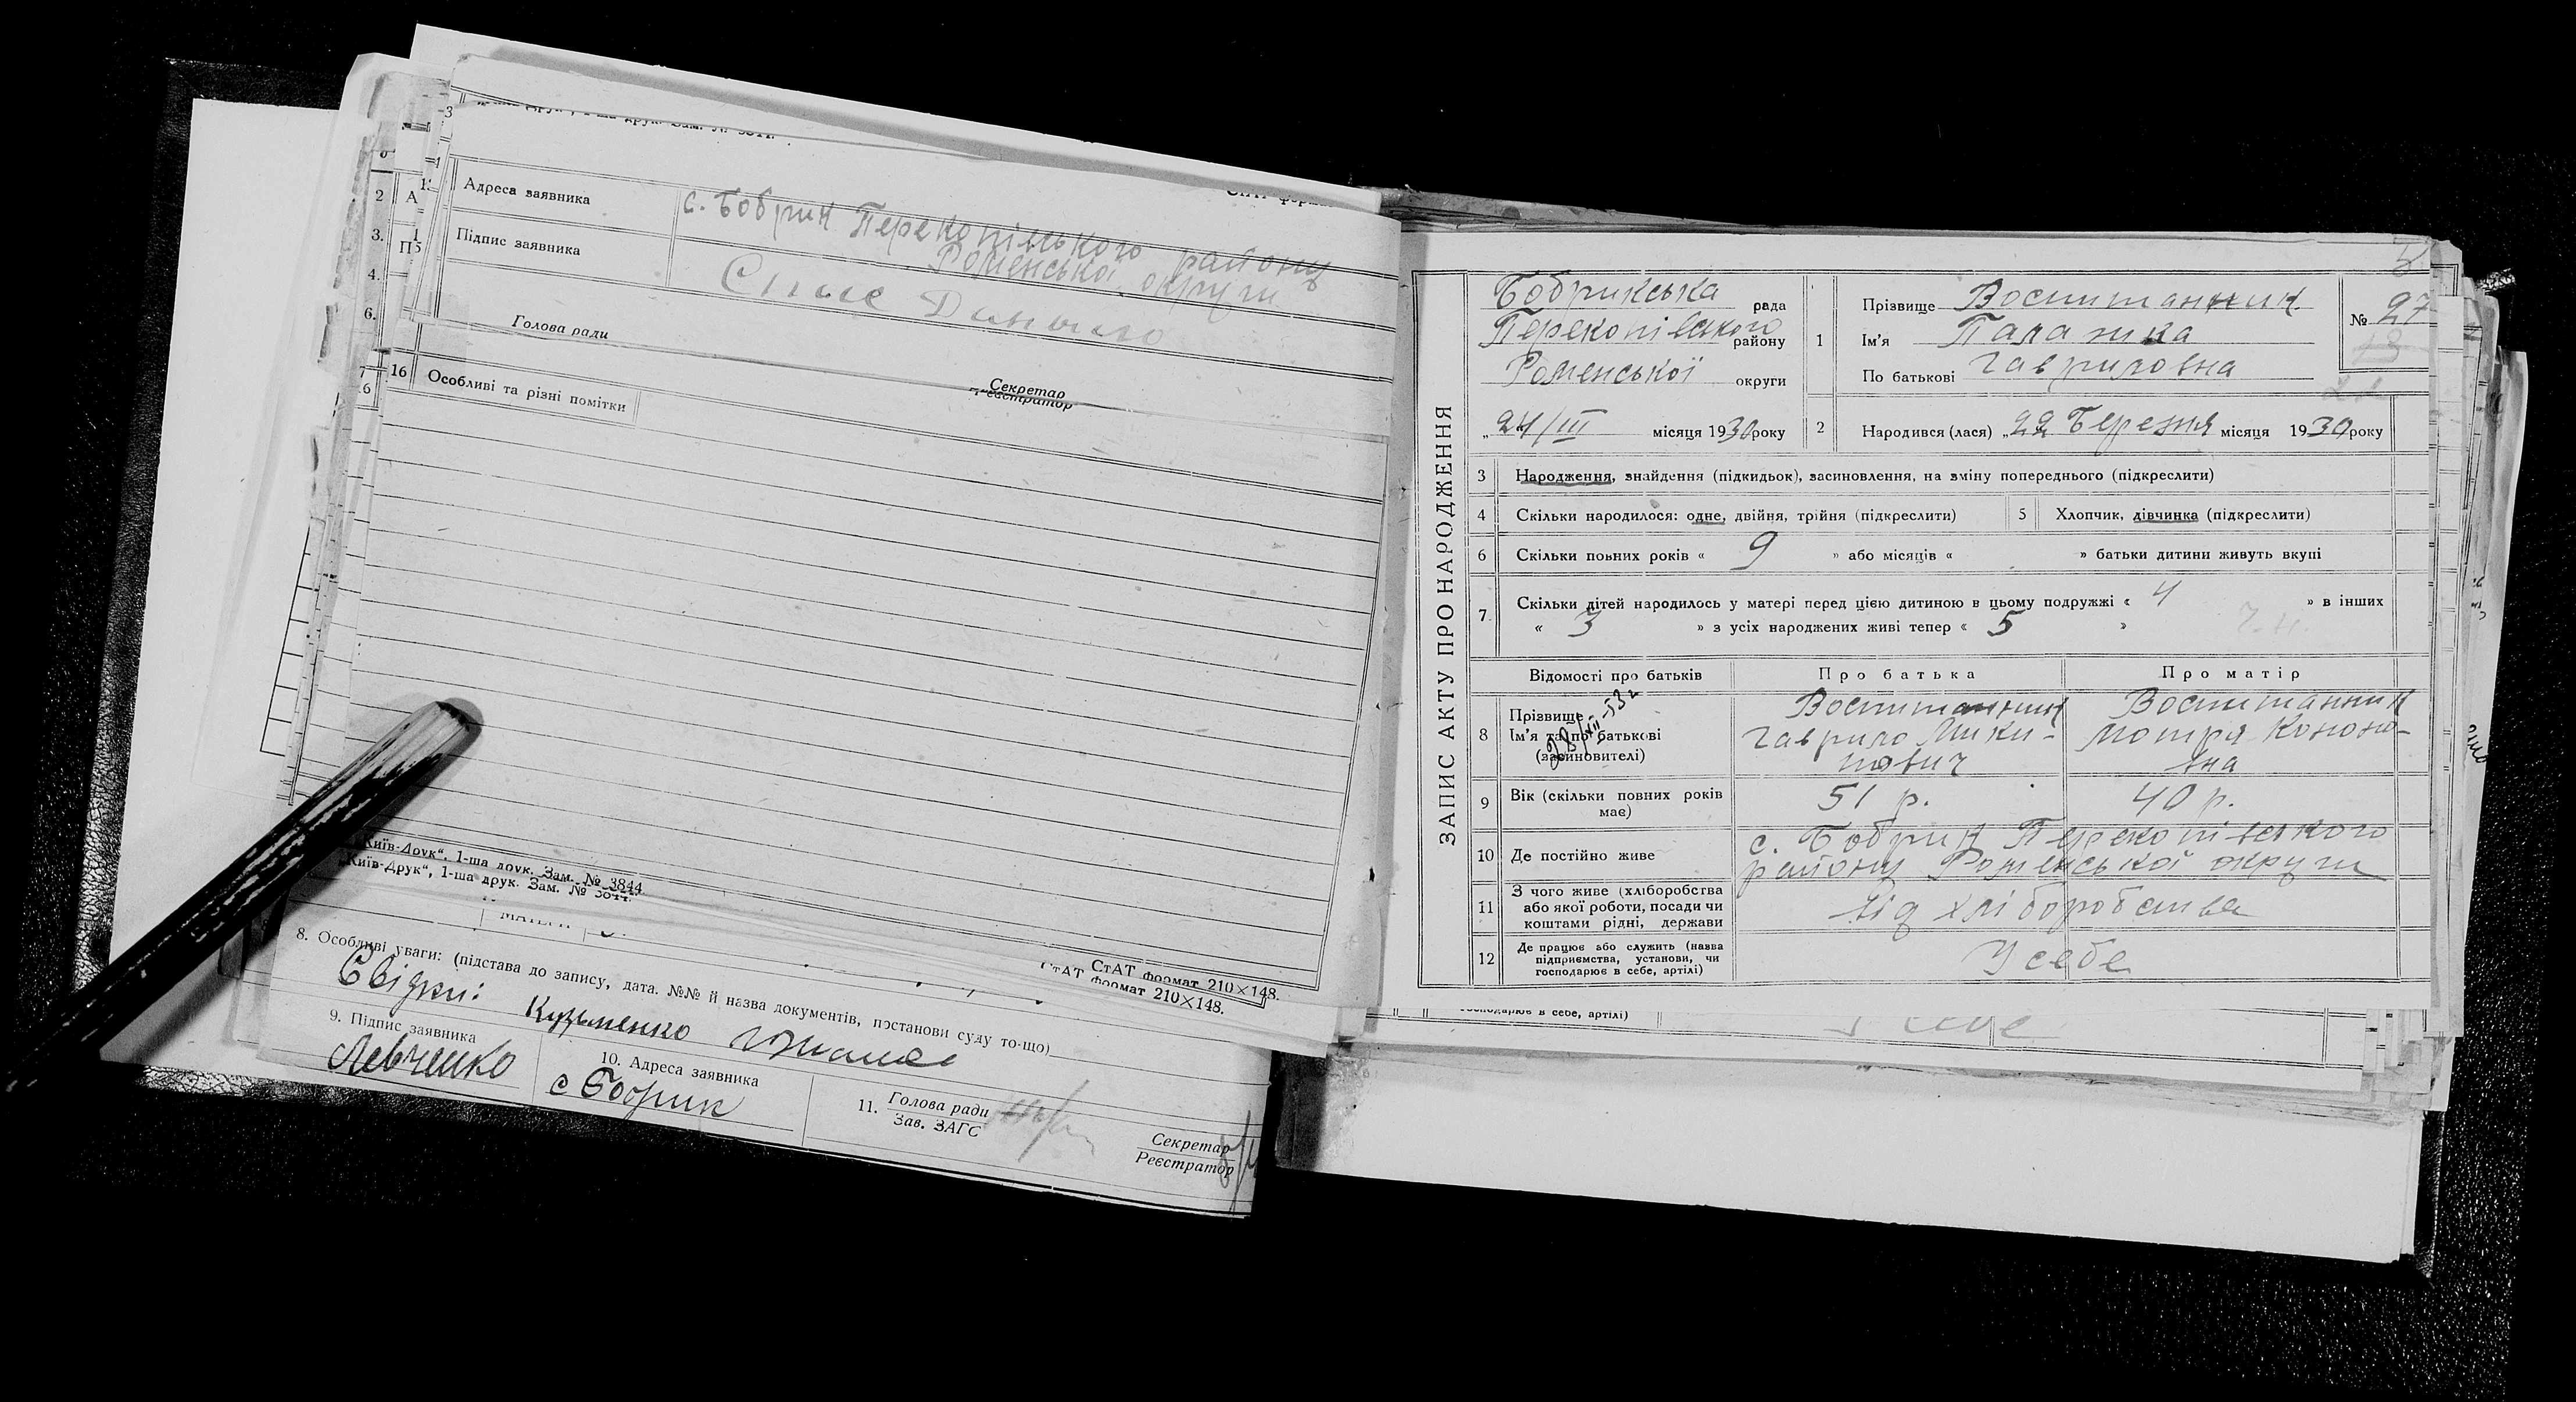 Адреса заявника с. Бобрик Перекопівського району
Роменська округи
Підпис заявника
Голова ради
Секретар
Реєстратор
16 Особливі та різні помітки
„Київ-Друк“, 1-ша друк. Зам. № 3844.
„Київ-Друк“, 1-ша друк. Зам. № 3844.
СтАТ формат 210×148.
формат 210×148.
8. Особливі уваги: (підстава до запису, дата. №№ й назва документів, постанови суду то-що)
Свідки: Кузьменко
9. Підпис заявника
Левченко
10. Адреса заявника
с Бобрик
11. Голова ради
Зав. ЗАГС
Секретар
Реєстратор
ЗАПИС АКТУ ПРО НАРОДЖЕННЯ
Бобрикська рада
Перекопівського району
Роменської округи
„24/III місяця 1930 року
1 Прізвище Воспитанник
Ім'я Палажка
По батькові Гавриловна
№ 27
2 Народився (лася) „22 Березня місяця 1930 року
3 Народження, знайдення (підкидьок), засиновлення, на зміну попереднього (підкреслити)
4 Скільки народилося: одне, двійня, трійня (підкреслити) 5 Хлопчик, дівчинка (підкреслити)
6 Скільки повних років « 9 » або місяців « » батьки дитини живуть вкупі
7 Скільки дітей народилось у матері перед цією дитиною в цьому подружжі « 4 » в інших
« 3 » з усіх народжених живі тепер « 5 »
Відомості про батьків Про батька Про матір
8 Прізвище
Ім'я та по батькові
(засиновителі)
Воспитанник
Гаврило Мики-
тович
Воспитанник
Мотря Кононо-
вна
9 Вік (скільки повних років
має) 51 р. 40 р.
10 Де постійно живе с. Бобрик Перекопівського
району Роменської округи
11 З чого живе (хліборобства
або якої роботи, посади чи
коштами рідні, держави
Від хліборобства
12 Де працює або служить (назва
підприємства, установи, чи
господарює в себе, артілі)
У себе
господарює в себе, артілі)